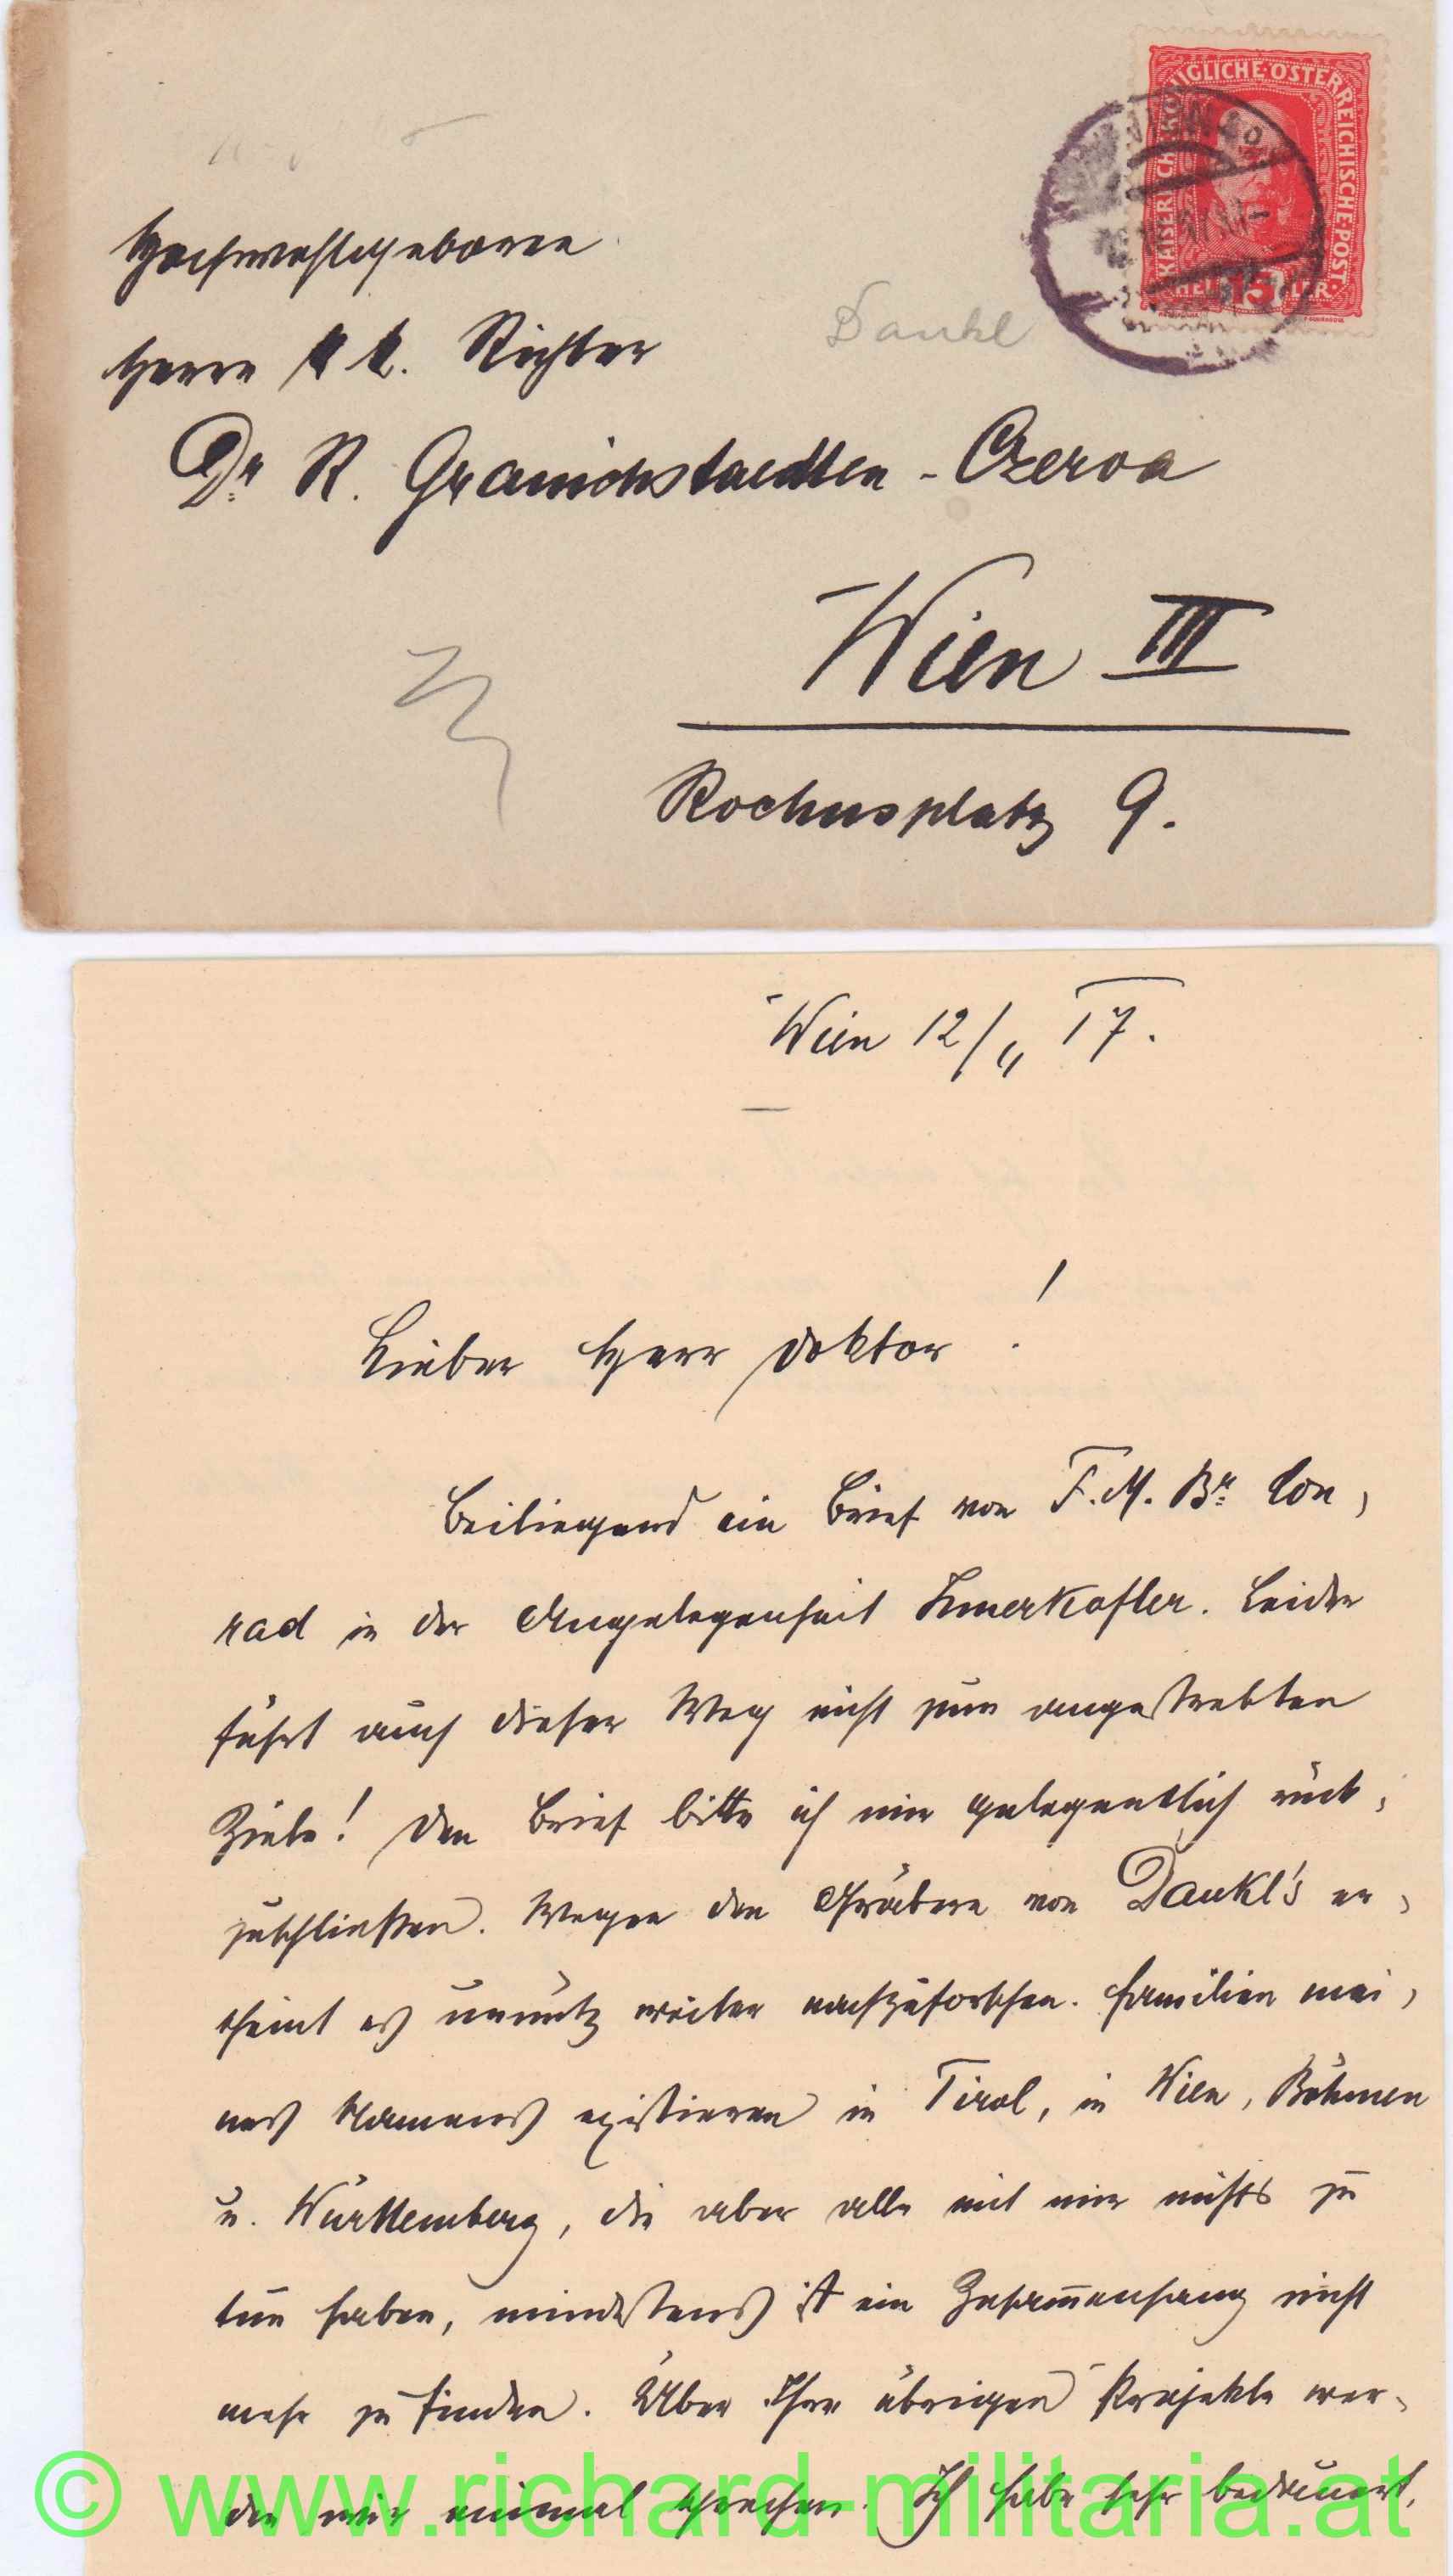 KAISERLICHE KÖNIGLICHE ÖSTERREICHISCHE POST
15 HELLER
WIEN
Dankl
Hochwohlgeboren
Herrn k k. Richter
Dr R. Granichstaedten-Czerva
Wien III
Rochusplatz 9.
Wien 12/4 17.
Lieber Herr Doktor!
Beiliegend ein Brief von F.M. Br. Con,
rad in der Angelegenheit Innerkofler. Leider
führt auch dieser Weg nicht zum angestrebten
Ziele! Den Brief bitte ich mir gelegentlich rück,
zuschließen. Wegen den Gräbern von Dankl's er,
scheint es unnütz weiter nachzuforschen. Familien mei,
nes Namens existieren in Tirol, in Wien, Böhmen
u. Württemberg, die aber alle mit mir nichts zu
tun haben, mindestens ist ein Zusammenhang nicht
mehr zu finden. Über Ihre übrigen Projekte wer,
den wir einmal sprechen. Ich habe sehr bedauert,
© www.richard-militaria.at